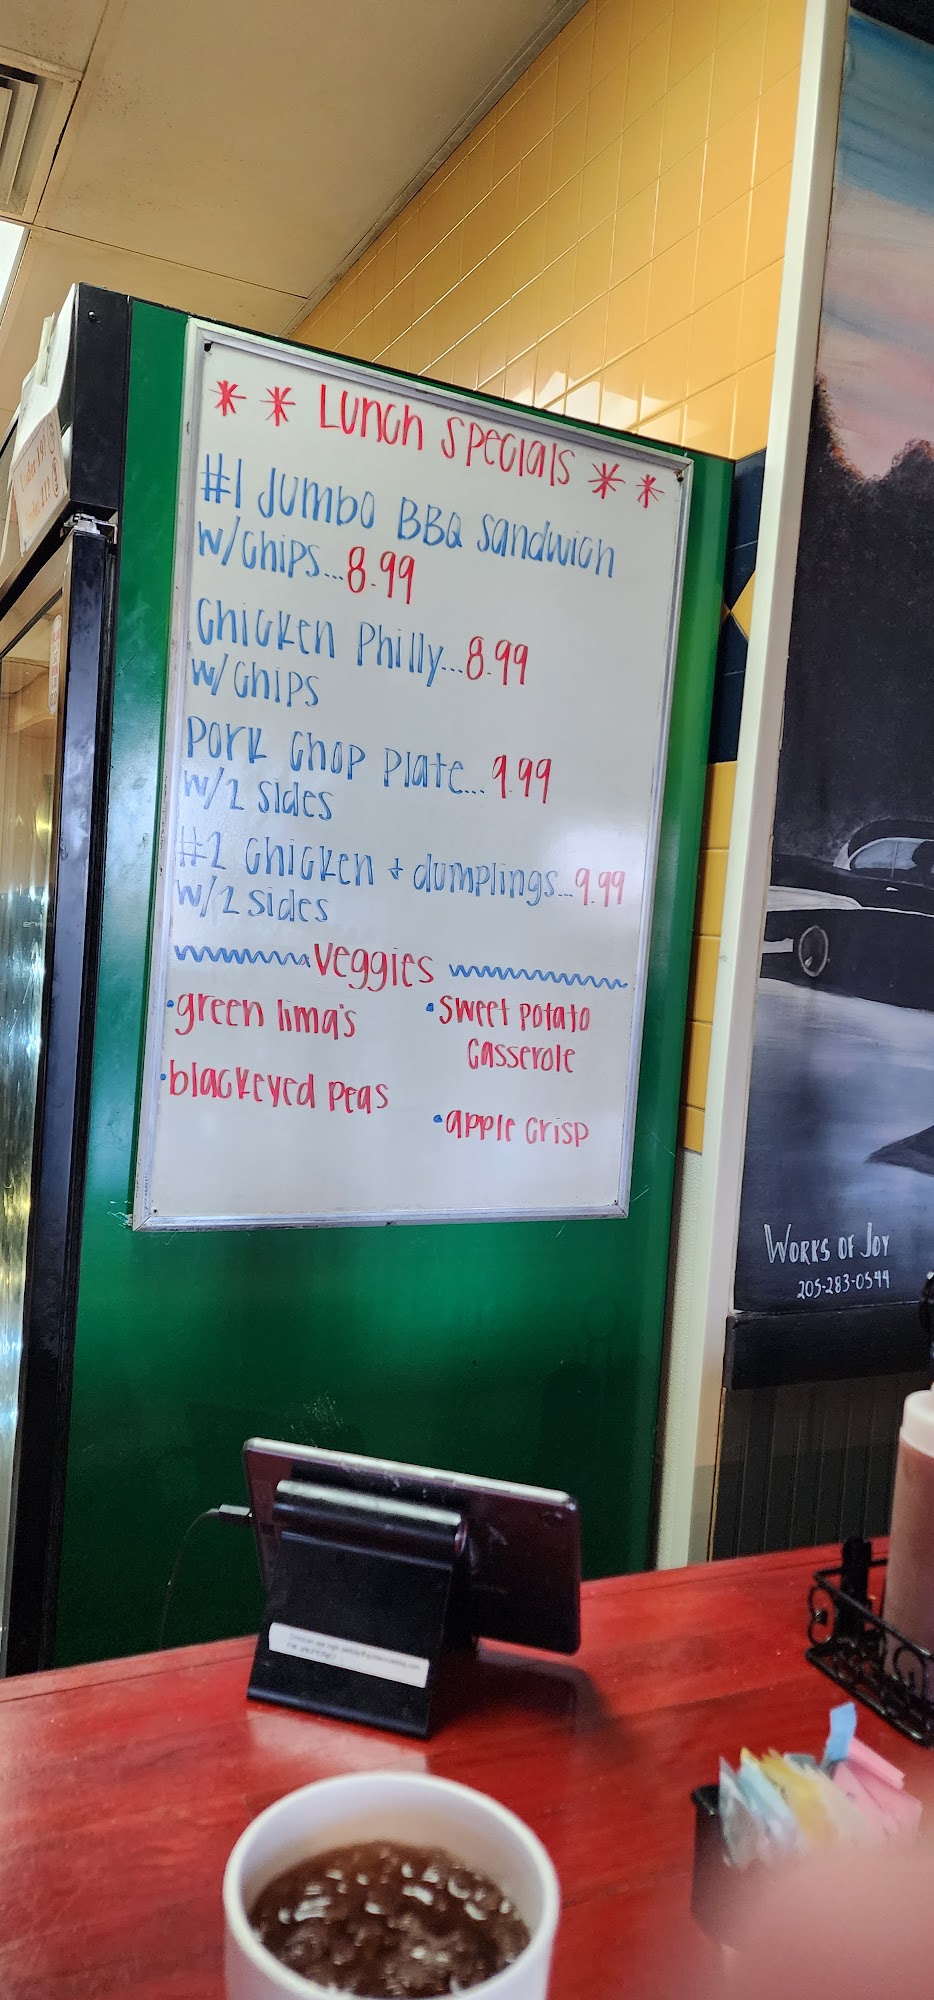 ** Lunch Specials **
#1 Jumbo BBQ Sandwich
w/Chips...8.99
Chicken Philly...8.99
w/Chips
Pork Chop Plate...9.99
w/2 sides
#2 Chicken + dumplings...9.99
w/2 sides
Veggies
•green lima's
•Sweet potato
Casserole
•blackeyed peas
•apple crisp
Works of Joy
205-283-0544